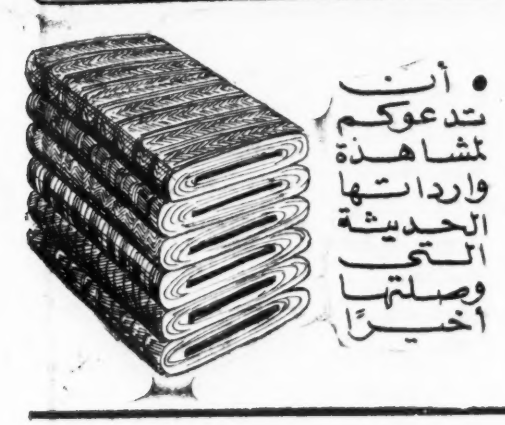 • أن
تدعوكم
لمشاهذة
وارداتها
الحديثة
التي
وصلتها
أخيرًا